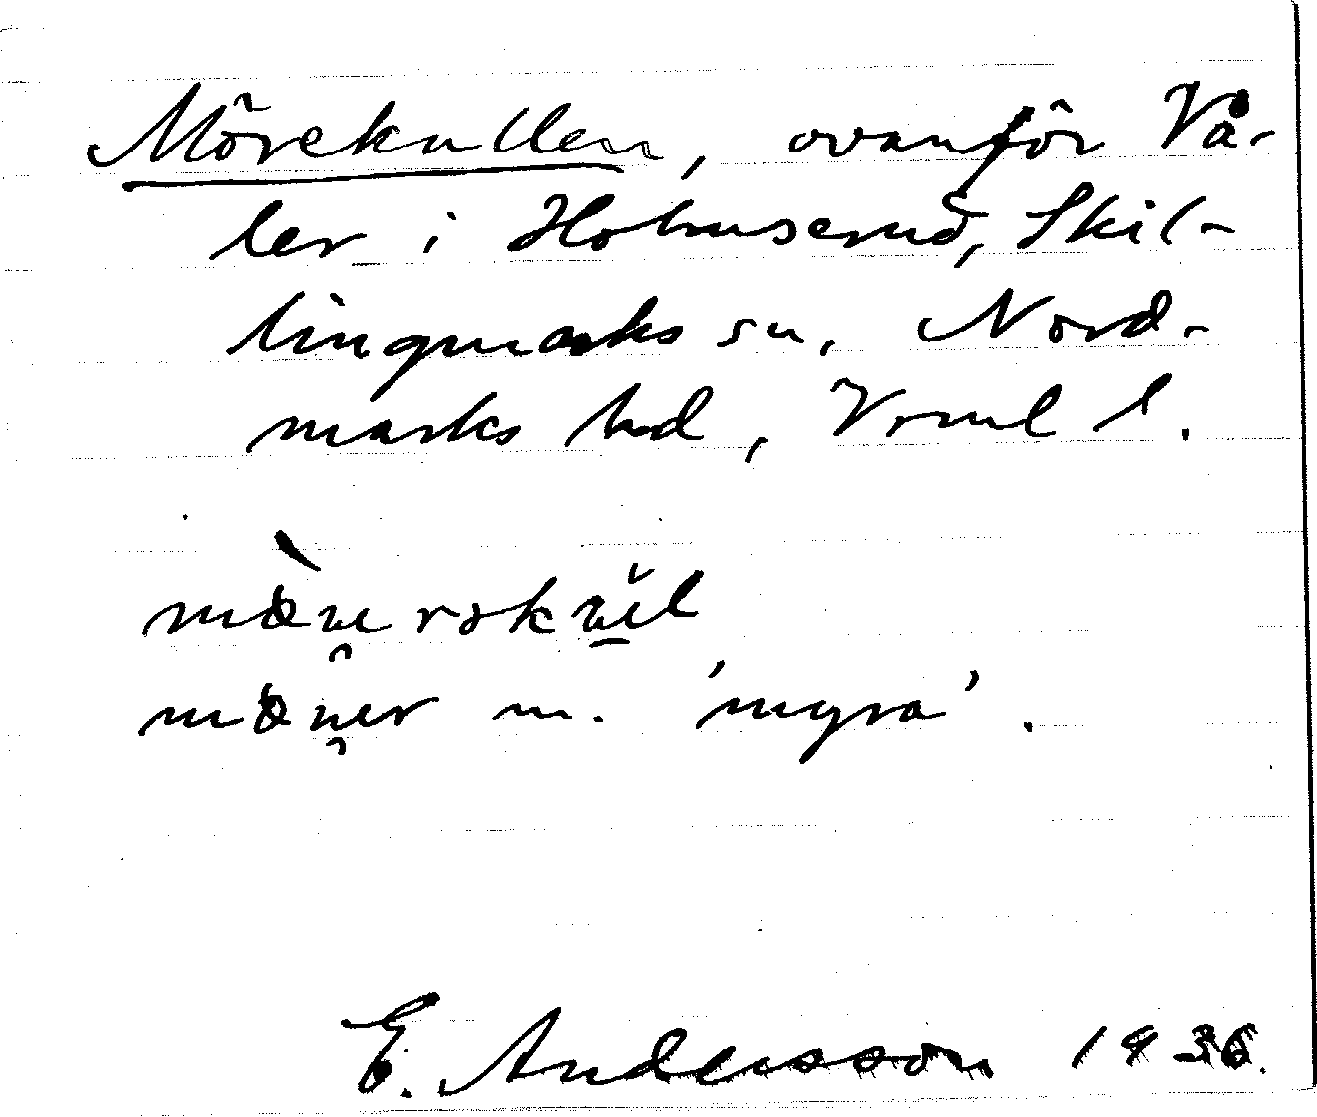 Mörekullen, ovanför Vå-
ler i Holmserud, Skil-
lingmarks sn, Nord-
marks hd, Vrml l.
m. 'myra'.
E. Andersson 1936.